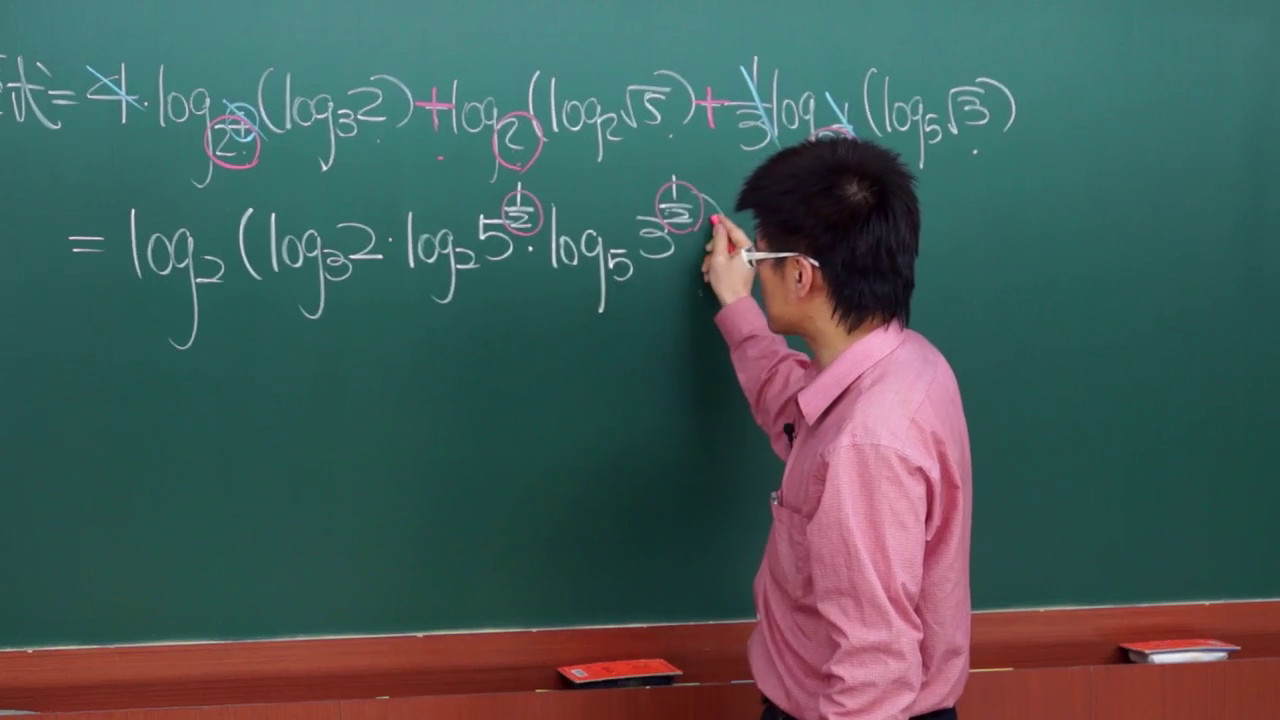 式 = 4 · log_{2^4}(log₃2) + log₂(log₂√5) + 1/3 log (log₅√3)
= log₂(log₃2 · log₂5^{1/2} · log₅3^{1/2})